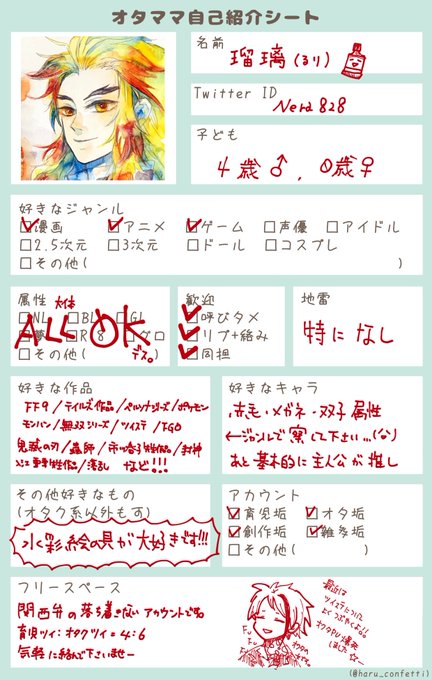 オタママ自己紹介シート
名前
瑠璃(るり)
Twitter ID
Nerd828
子ども
4歳♂、0歳♀
好きなジャンル
漫画 アニメ ゲーム 声優 アイドル
2.5次元 3次元 ドール コスプレ
その他( )
属性 大体
NL BL GL
夢 R18 グロ
ALL OK
その他( デス。)
歓迎
呼びタメ
リプ+絡み
同担
地雷
特になし
好きな作品
FF9/テイルズ作品/ペルソナシリーズ/ポケモン
モンハン/無双シリーズ/ツイステ/FGO
鬼滅の刃/蟲師/市川春子先生作品/封神
など!!!
好きなキャラ
赤毛・メガネ・双子属性
←ジャンルで察して下さい…
あと基本的に主人公が推し
その他好きなもの
(オタク系以外も可)
水彩絵の具が大好きです!!!
アカウント
育児垢 オタ垢
創作垢 雑多垢
その他( )
フリースペース
関西弁の落ち着きないアカウントです。
育児ツイ:オタクツイ=4:6
気軽に絡んで下さいませー
最近は
ツイステについて
よくつぶやくよ!!
(@haru_confetti)